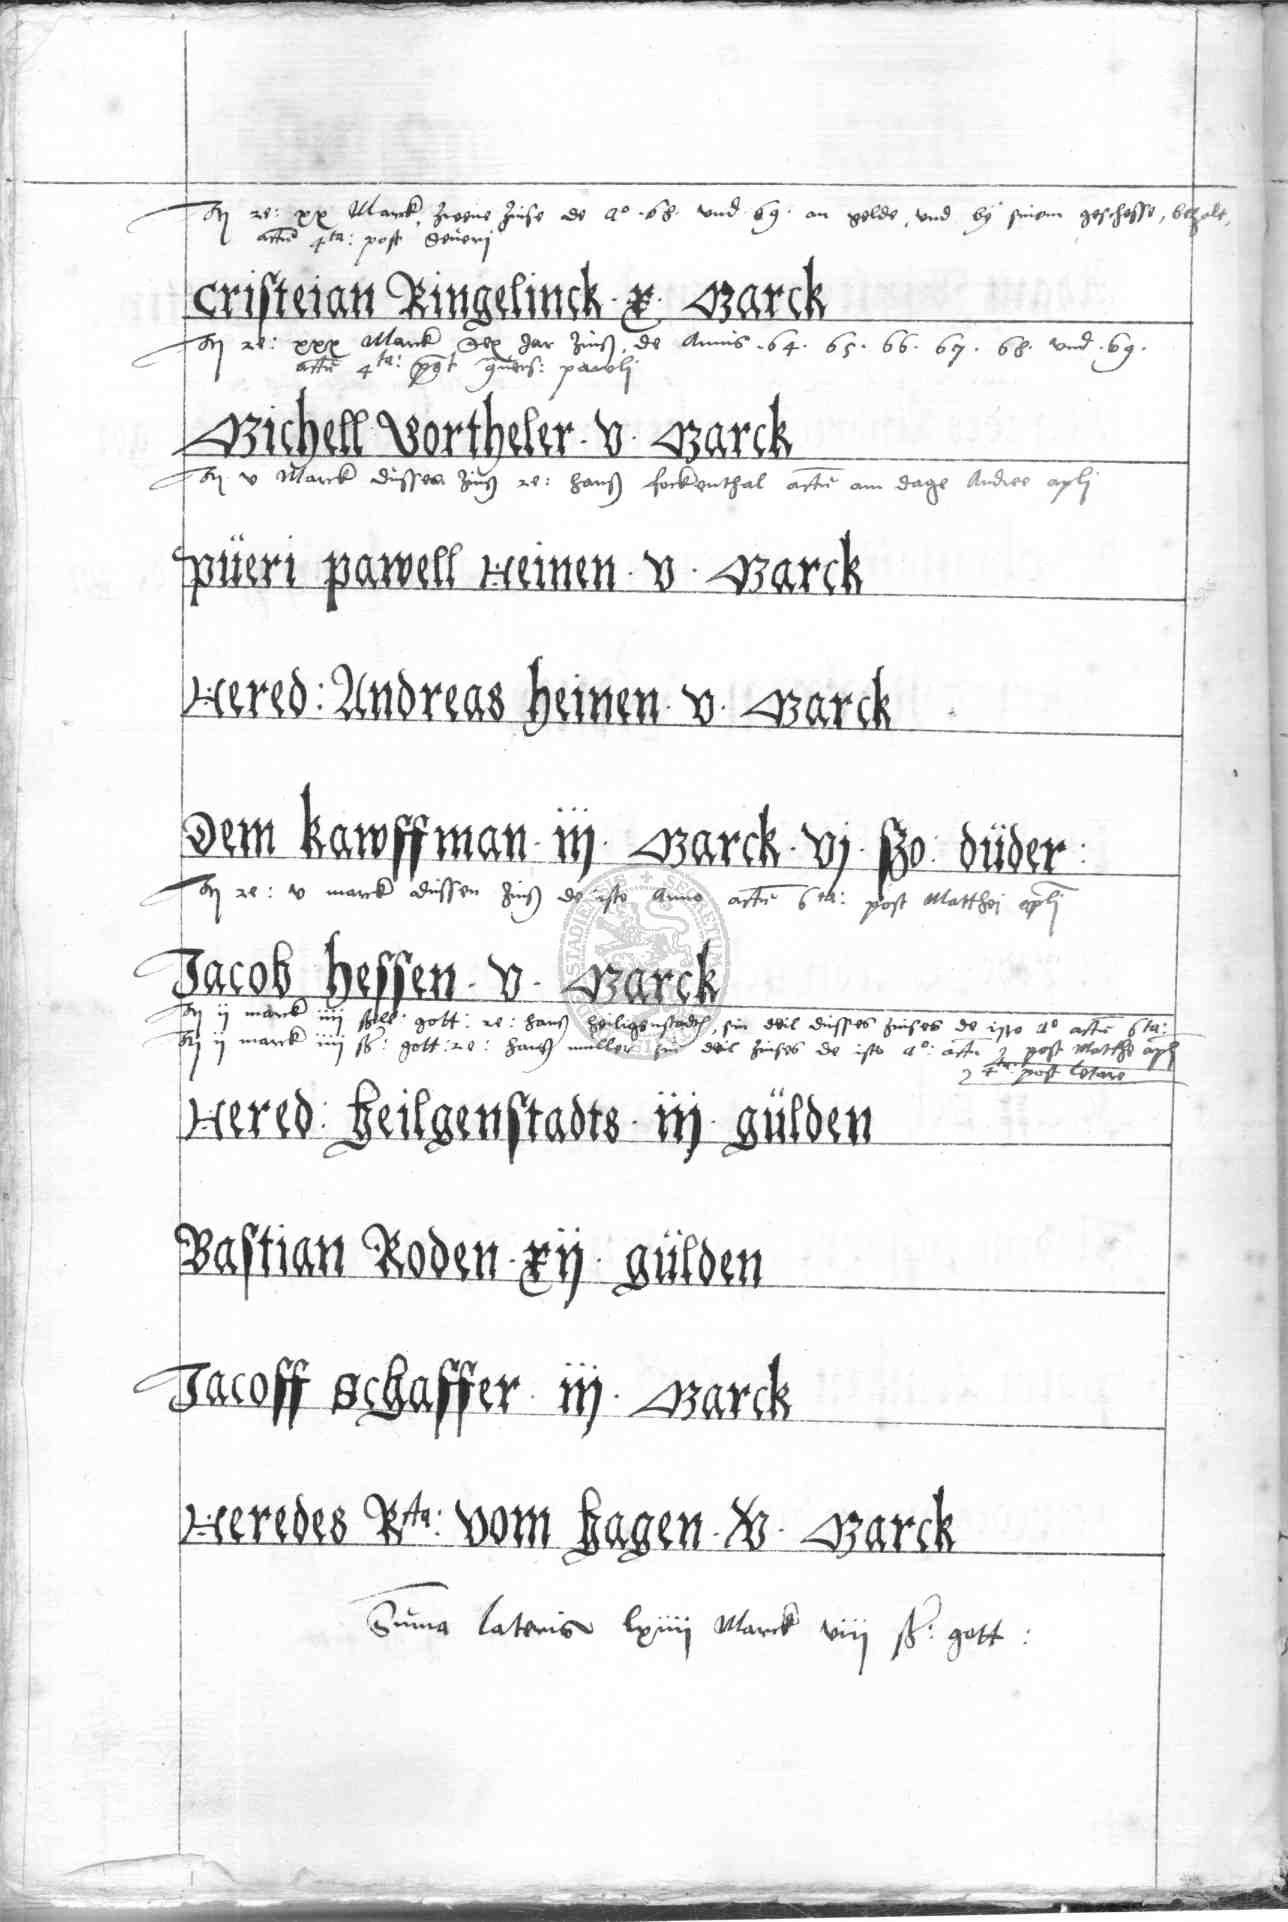 re: xx Marck, zweene zinse de a° .68. und .69. an gelde, und by sinem geschosse, bezalt,
actu 4ta: post Severi
Cristeian Ringelinck · x · Marck
re: xxx Marck Sex Jar zinß, de Annis .64. 65. 66. 67. 68. und .69.
actu 4ta: pawli
Michell Vortheler · v · Marck
v Marck dusses zinß re: Hanß fockenthal actu am dage Andree apli
püeri pawell Heinen · v · Marck
Hered: Andreas Heinen · v · Marck
Dem kawffman · iij · Marck · vj · ßo: düder:
re: v marck dussen zinß de isto Anno actu 6ta: post Matthei apli
Jacob Hessen · v · Marck
ij marck iiij gott: re: Hanß Heiligenstadth, sin deil dusses zinses de isto a° actu 6ta:
post Matthe apli
ij marck iiij ß: gott: re: Hanß muller sin deil zinses de isto a°: actu
4ta: post letare
Hered: Heilgenstadts · iij · gülden
Bastian Roden · xij · gülden
Jacoff Schaffer · iij · Marck
Heredes Rta: vom Hagen · xv · Marck
Suma lateris lxiiij Marck viij ß: gott: